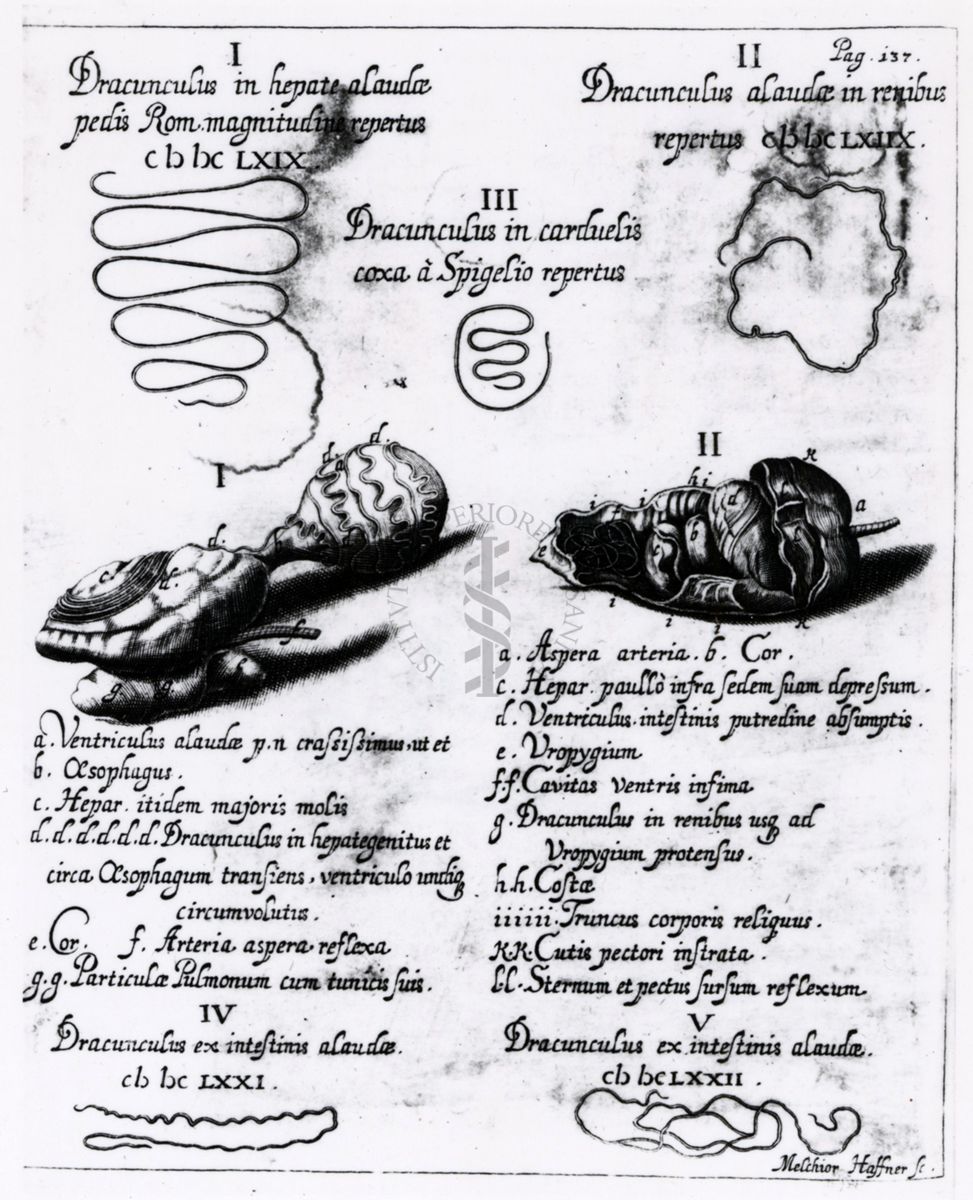 Pag. 137.
I
Dracunculus in hepate alaudæ
pedis Rom. magnitudine repertus
cIɔ Iɔc LXIX.
II
Dracunculus alaudæ in renibus
repertus cIɔ Iɔc LXIIX.
III
Dracunculus in carduelis
coxa à Spigelio repertus
I
d. d.
a
d.
c
d.
f
e
g g
II
h i
i i
d
k
a
e
c
b
i
i
i
k
a. Ventriculus alaudæ p.n craſsiſsimus, ut et
b. Œsophagus.
c. Hepar itidem majoris molis
d.d.d.d.d.d. Dracunculus in hepate genitus et
circa Œsophagum transiens, ventriculo undiq
circumvolutus.
e. Cor. f. Arteria aspera reflexa
g.g. Particulæ Pulmonum cum tunicis ſuis.
a. Aspera arteria. b. Cor.
c. Hepar paullò infra ſedem ſuam depreſsum.
d. Ventriculus inteſtinis putredine abſumptis.
e. Uropygium
f.f. Cavitas ventris infima
g. Dracunculus in renibus usq ad
Uropygium protenſus.
h.h. Coſtæ
iiiiii. Truncus corporis reliquus.
K.K. Cutis pectori inſtrata.
l.l. Sternum et pectus ſurſum reflexum
IV
Dracunculus ex inteſtinis alaudæ.
cIɔ Iɔc LXXI.
V
Dracunculus ex inteſtinis alaudæ.
cIɔ IɔcLXXII.
Melchior Haffner ſc.